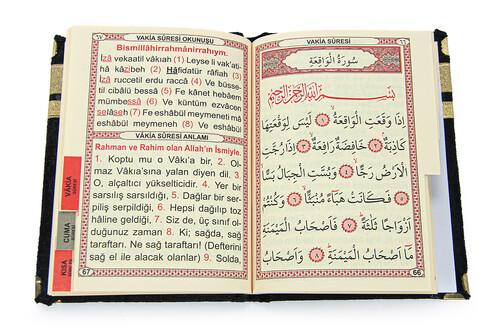 ٦٧
VAKİA SÛRESİ OKUNUŞU
Bismillâhirrahmânirrahıym.
İzâ vekaatil vâkıah (1) Leyse li vak'ati-
hâ kâzibeh (2) Hâfidatür râfiah (3)
İzâ ruccetil erdu raccâ (4) Ve büsse-
til cibâlü bessâ (5) Fe kânet hebâem
mümbessâ (6) Ve küntüm ezvâcen
selâseh (7) Fe eshâbül meymeneti mâ
eshâbül meymeneh (8) Ve eshâbül
VAKİA SÛRESİ ANLAMI
Rahman ve Rahim olan Allah'ın İsmiyle.
1. Koptu mu o Vâkı'a bir, 2. Ol-
maz Vâkıa'sına yalan diyen dil. 3.
O, alçaltıcı yükselticidir. 4. Yer bir
sarsılış sarsıldığı. 5. Dağlar bir ser-
piliş serpildiği, 6. Hepsi dağılıp toz
hâline geldiği, 7. Siz de, üç sınıf ol-
duğunuz zaman 8. Ki; sağda, sağ
taraftarı. Ne sağ taraftarı! (Defterini
sağ el ile alacak olanlar) 9. Solda,
67
VÂKIA
CUMA
KISA
VAKİA SÛRESİ
٦٦
سُورَةُ الْوَاقِعَةِ
بِسْمِ اللّٰهِ الرَّحْمٰنِ الرَّحِيمِ
اِذَا وَقَعَتِ الْوَاقِعَةُ ﴿١﴾ لَيْسَ لِوَقْعَتِهَا
كَاذِبَةٌ ﴿٢﴾ خَافِضَةٌ رَافِعَةٌ ﴿٣﴾ اِذَا رُجَّتِ
الْاَرْضُ رَجًّا ﴿٤﴾ وَبُسَّتِ الْجِبَالُ بَسًّا
﴿٥﴾ فَكَانَتْ هَبَاءً مُنْبَثًّا ﴿٦﴾ وَكُنْتُمْ
اَزْوَاجًا ثَلٰثَةً ﴿٧﴾ فَاَصْحَابُ الْمَيْمَنَةِ
مَا اَصْحَابُ الْمَيْمَنَةِ ﴿٨﴾ وَاَصْحَابُ
66